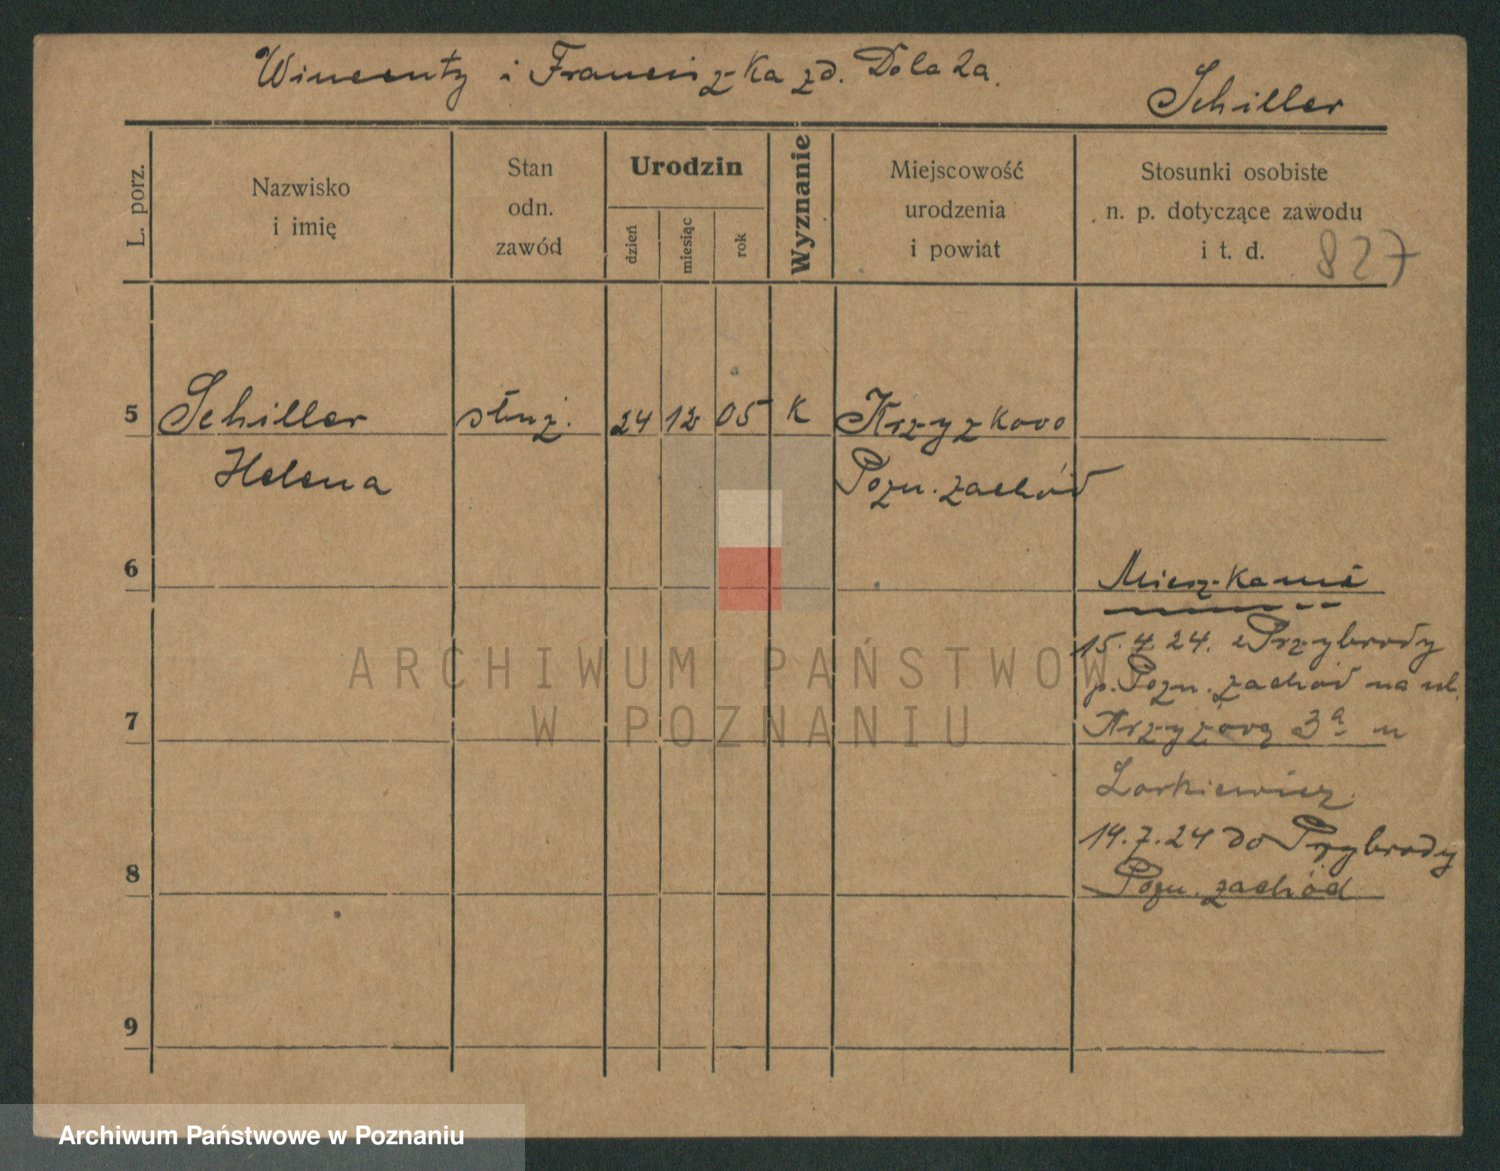 Wincenty i Franciszka zd. Dolata.
Schiller
L. porz.
Nazwisko
i imię
Stan
odn.
zawód
Urodzin
dzień
miesiąc
rok
Wyznanie
Miejscowość
urodzenia
i powiat
Stosunki osobiste
n. p. dotyczące zawodu
i t. d.
827
5 Schiller służ. 24 12 05 K Krzyzkowo
Helena Pozn. zachód
6
Mieszkanie
15.4.24. z Przybrody
p. Pozn. zachód na ul.
7 Krzyżową 3a u
14.7.24 do Przybrody
8 Pozn. zachód
9
ARCHIWUM PAŃSTWOWE
W POZNANIU
Archiwum Państwowe w Poznaniu